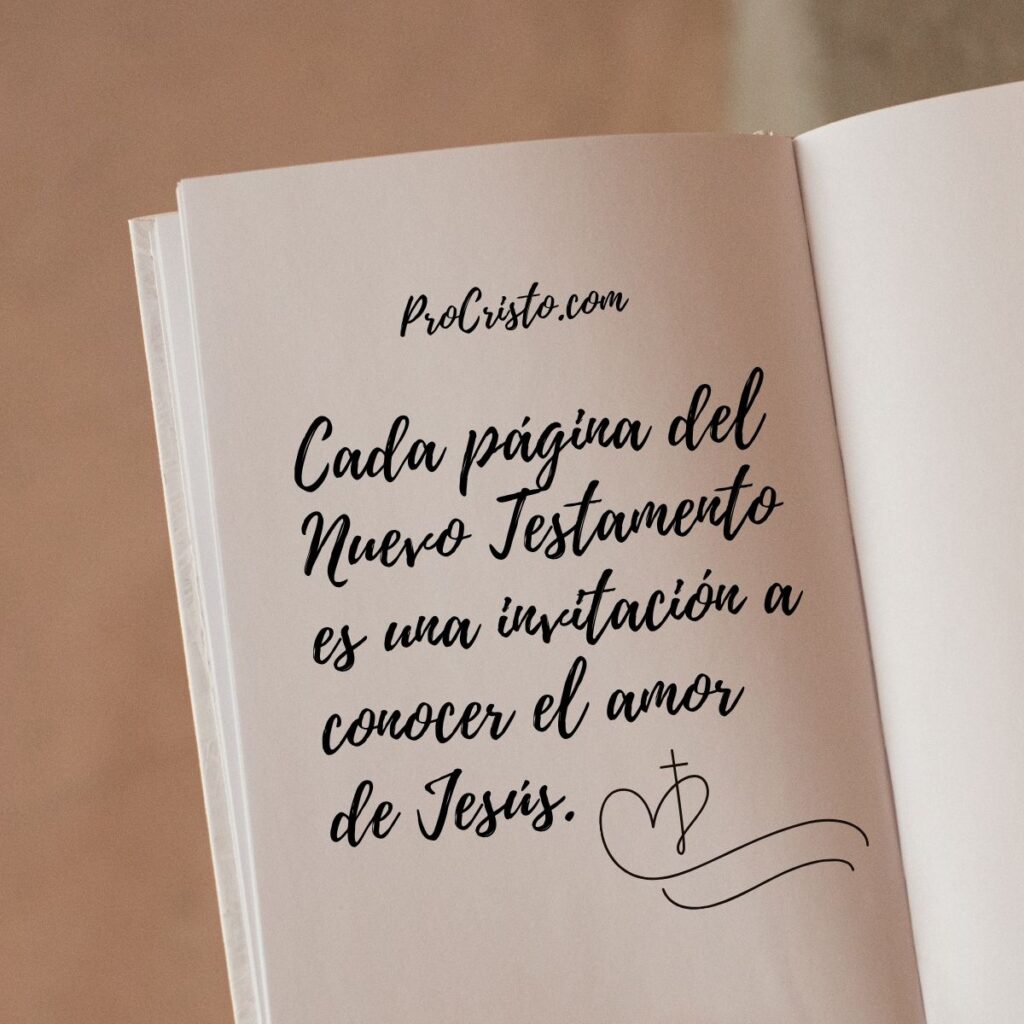 ProCristo.com
Cada página del
Nuevo Testamento
es una invitación a
conocer el amor
de Jesús.